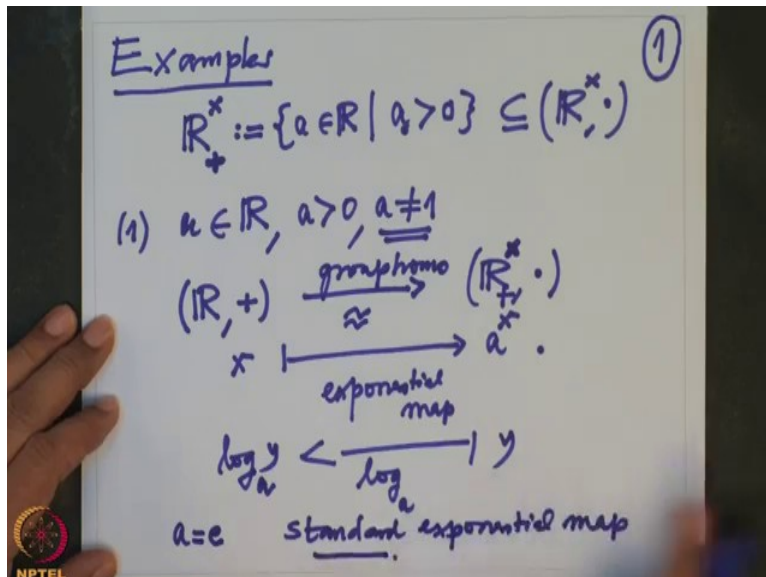 Examples ①
ℝ₊ˣ := {a ∈ ℝ | a > 0} ⊆ (ℝˣ, ·)
(1) a ∈ ℝ, a > 0, a ≠ 1
(ℝ, +) group homo ≈ (ℝ₊ˣ, ·)
x ↦ aˣ .
exponential
map
logₐ y <—| y
logₐ
a = e standard exponential map
NPTEL